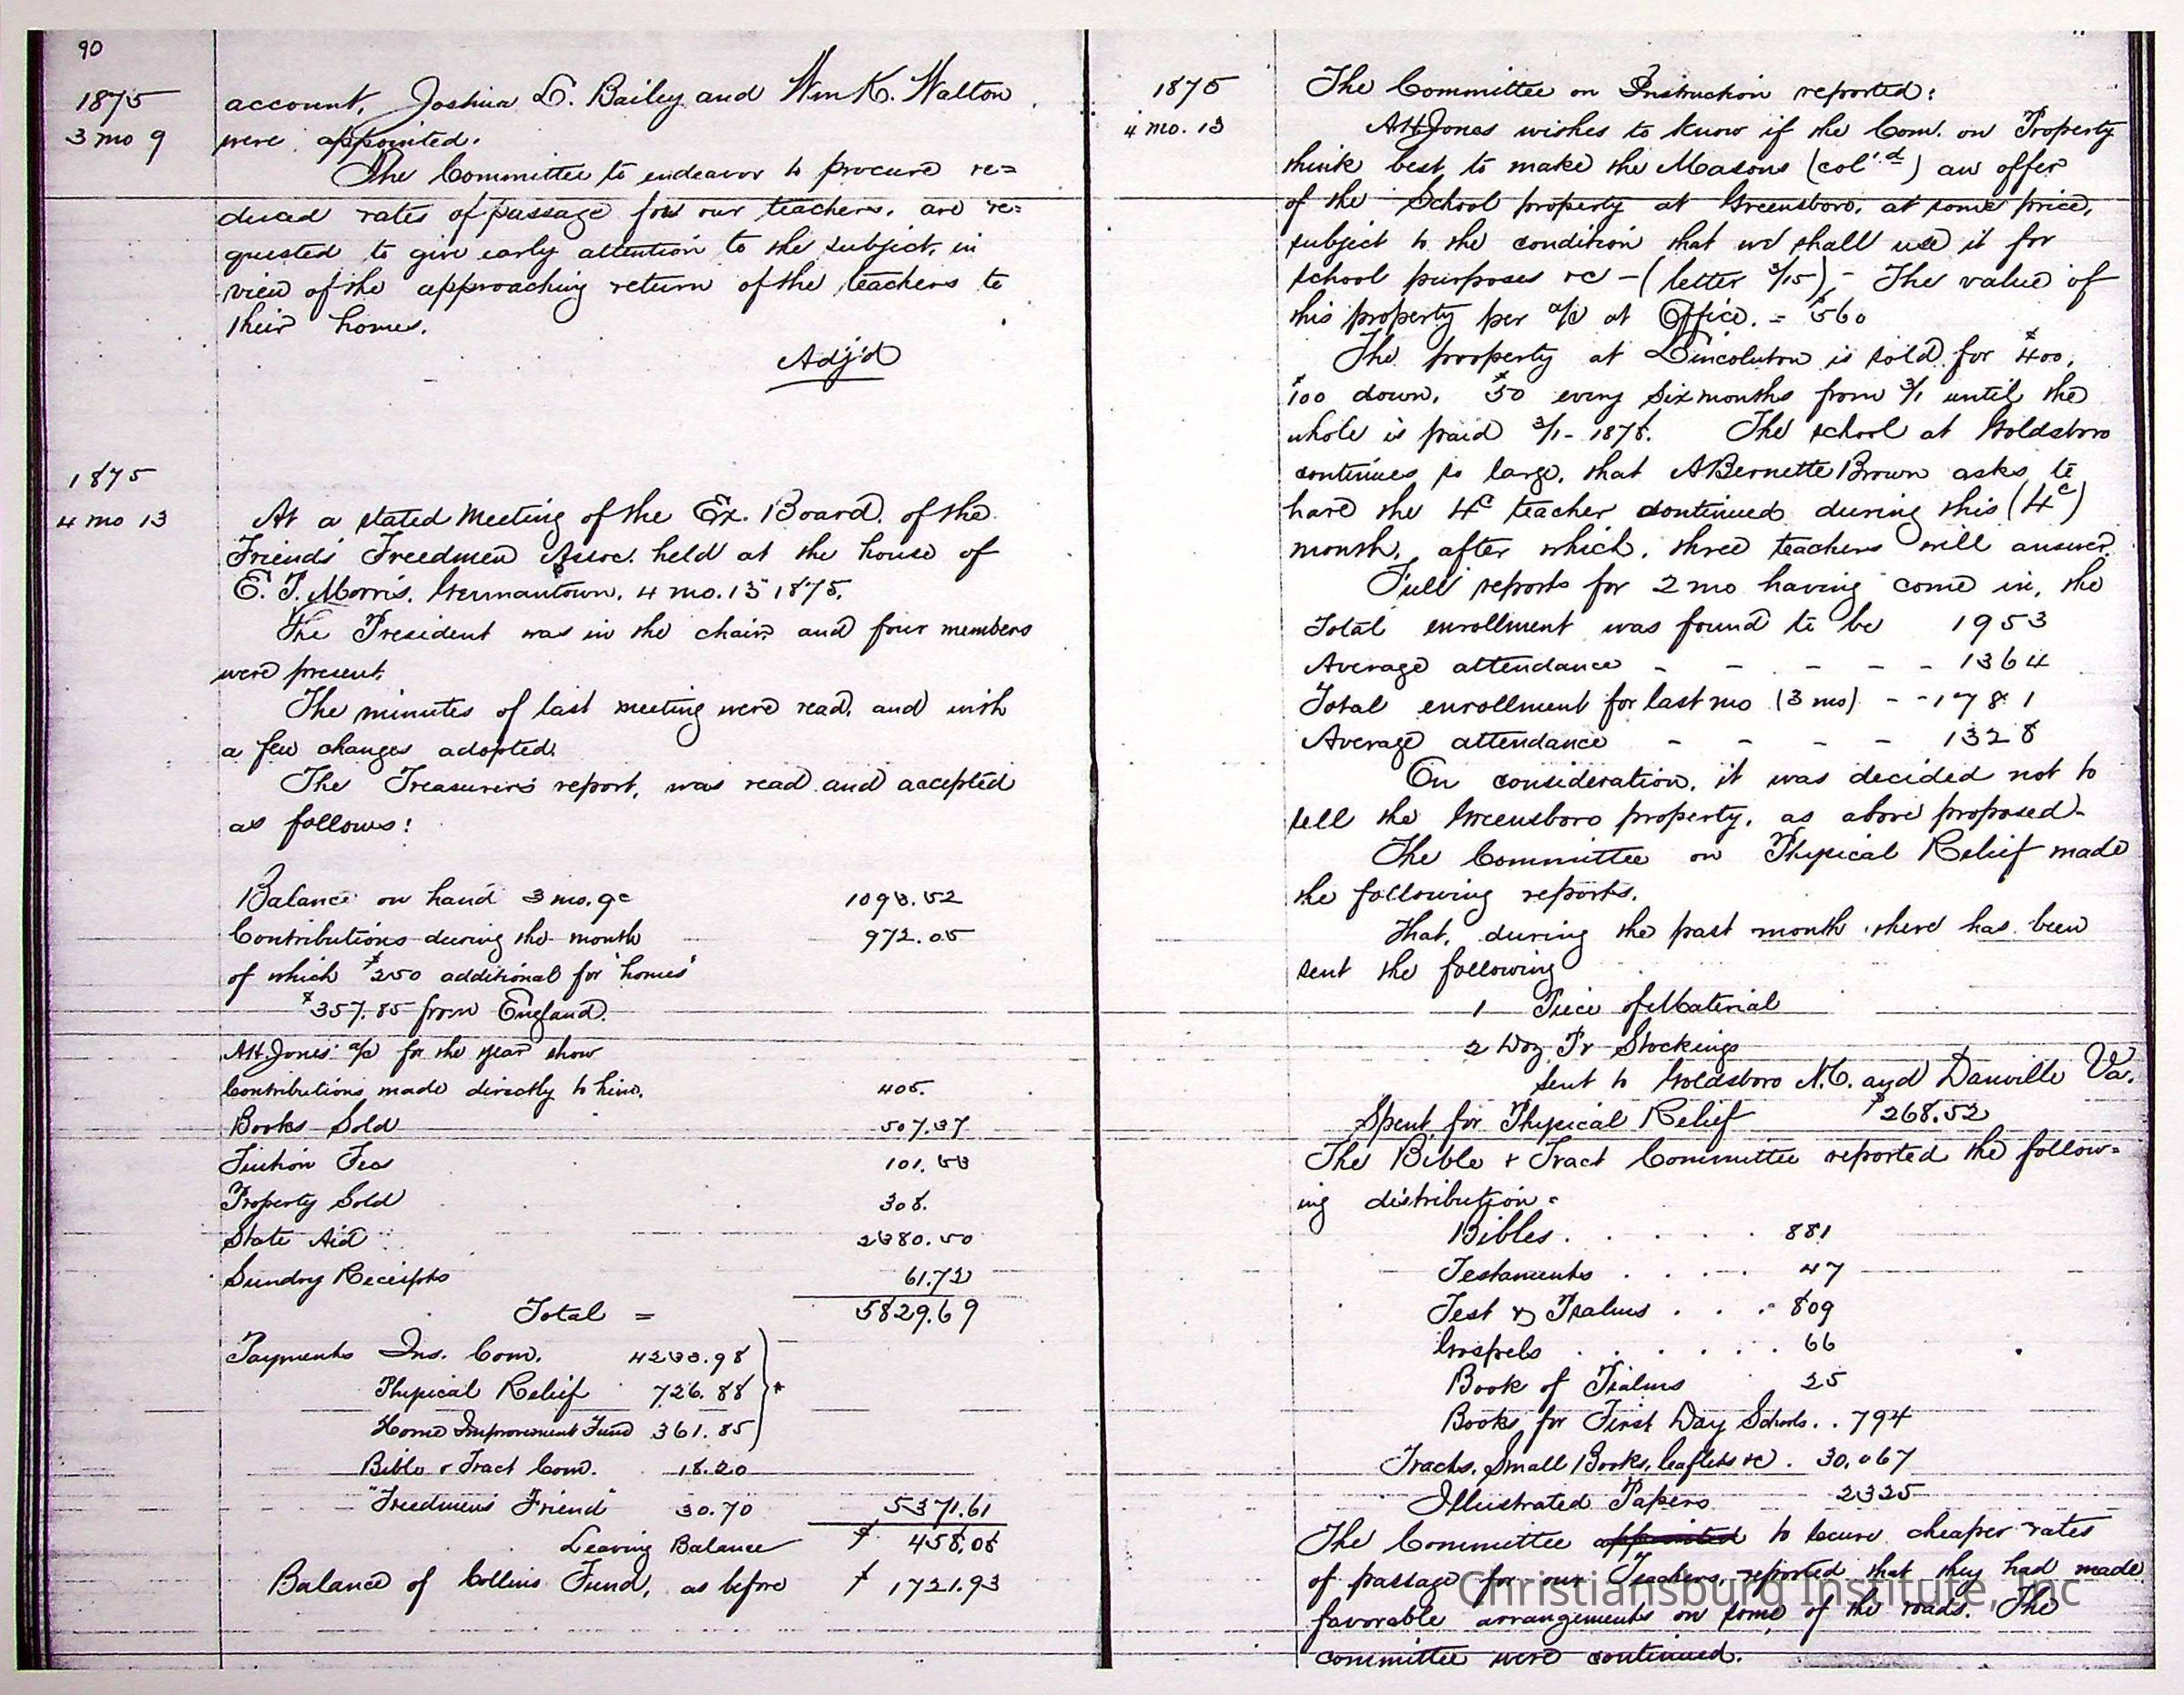 90
1875
3 mo 9
account, Joshua L. Bailey and Wm K. Walton
were appointed.
The Committee to endeavor to procure re=
duced rates of passage for our teachers, are re=
quested to give early attention to the subject, in
view of the approaching return of the teachers to
their homes.
Adj'd
1875
4 mo 13
At a stated meeting of the Ex. Board of the
Friends' Freedmen Assoc. held at the house of
E. T. Morris, Germantown, 4 mo. 13 1875.
The President was in the chair and four members
were present.
The minutes of last meeting were read, and with
a few changes adopted.
The Treasurer's report, was read and accepted
as follows:
Balance on hand 3 mo. 9c 1093.52
Contributions during the month 972.05
of which $250 additional for "homes"
$357.85 from England.
AH. Jones' a/c for the year show
Contributions made directly to him. 405.
Books Sold 507.37
Tuition Fees 101.53
Property Sold 308.
State Aid 2380.50
Sundry Receipts 61.72
Total = 5829.69
Payments Ins. Com. 4233.98
Physical Relief 726.88
Home Improvement Fund 361.85
Bible & Tract Com. 18.20
"Freedmen's Friend" 30.70 5371.61
Leaving Balance $ 458.08
Balance of Collins Fund, as before $ 1721.93
1875
4 mo. 13
The Committee on Instruction reported:
AH Jones wishes to know if the Com. on Property
think best to make the Masons (col'd) an offer
of the School property at Greensboro, at some price,
subject to the condition that we shall use it for
school purposes &c - (letter 3/15) - The value of
this property per a/c at Office. = $560
The property at Lincolnton is sold for $400,
$100 down, $50 every six months from 3/1 until the
whole is paid 3/1 - 1878. The school at Goldsboro
continues so large, that ABernette Brown asks to
have the 4c teacher continued during this (4c)
month, after which, three teachers will answer.
Full reports for 2 mo having come in, the
Total enrollment was found to be 1953
Average attendance - - - - - 1364
Total enrollment for last mo (3 mo) - - 1781
Average attendance - - - - 1328
On consideration, it was decided not to
sell the Greensboro property, as above proposed -
The Committee on Physical Relief made
the following reports.
That, during the past month there has been
sent the following
1 Piece of Material
2 Doz Pr Stockings
sent to Goldsboro N.C. and Danville Va.
Spent for Physical Relief $268.52
The Bible & Tract Committee reported the follow=
ing distribution =
Bibles . . . . . 881
Testaments . . . . 47
Test & Psalms . . . 809
Gospels . . . . . . 66
Book of Psalms 25
Books for First Day Schools . . 794
Tracts, Small Books, leaflets &c . 30,067
Illustrated Papers 2325
The Committee appointed to secure cheaper rates
of passage for our Teachers, reported that they had made
favorable arrangements on some of the roads. The
committee were continued.
Christiansburg Institute, Inc